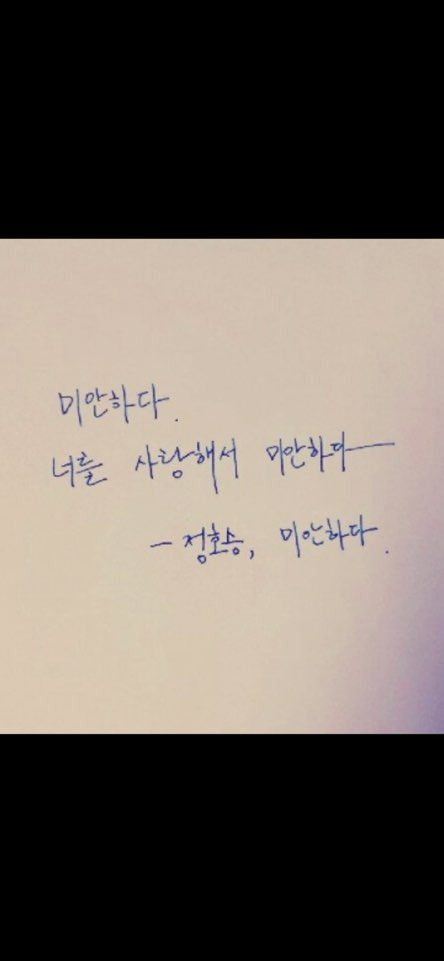 미안하다.
너를 사랑해서 미안하다—
— 정호승, 미안하다.